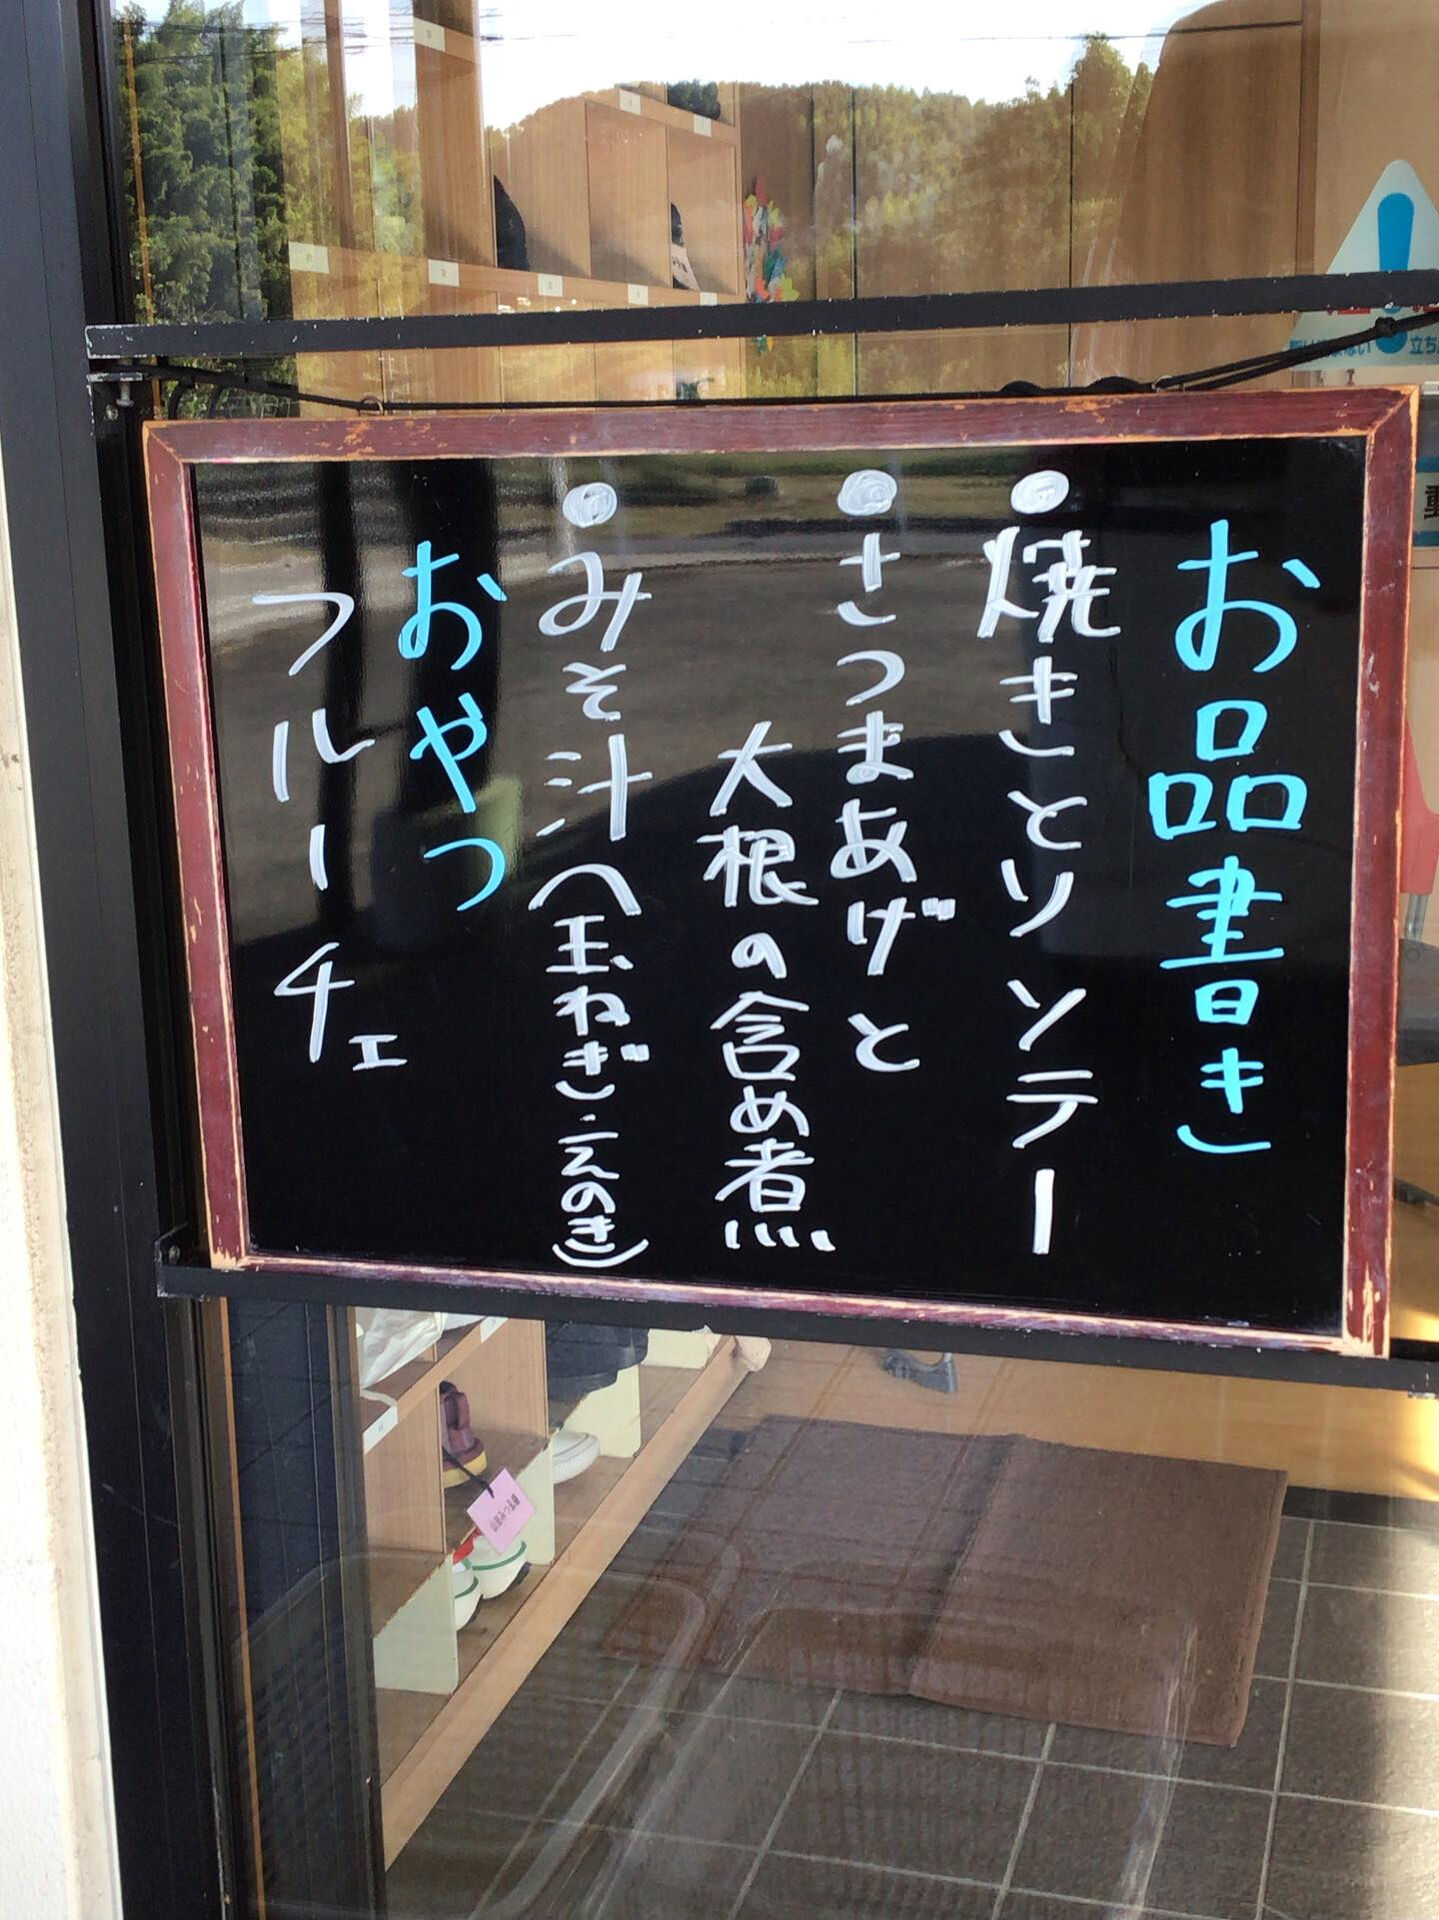 お品書き
焼きとりソテー
さつまあげと
大根の含め煮
みそ汁(玉ねぎ・えのき)
おやつ
フルーチェ